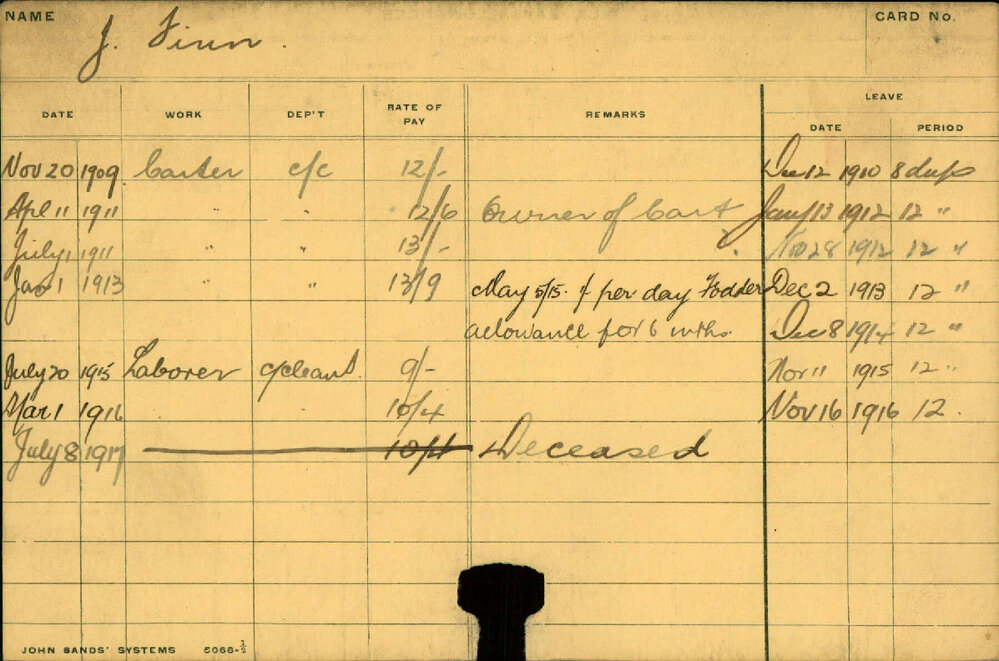 NAME J. Finn. CARD No.
DATE WORK DEP'T RATE OF PAY REMARKS LEAVE
DATE PERIOD
Nov 20 1909 Carter c/c 12/- Dec 12 1910 8 days
Apl 11 1911 " " 12/6 Owner of Cart Jany 13 1912 12 "
July 1 1911 " " 13/- Nov 28 1912 12 "
Jan 1 1913 " " 13/9 May 5/15. 1/- per day Fodder Dec 2 1913 12 "
allowance for 6 mths. Dec 8 1914 12 "
July 20 1915 Laborer 9/- Nov 11 1915 12 "
Mar 1 1916 10/4 Nov 16 1916 12.
July 8 1917 10/4 Deceased
JOHN SANDS' SYSTEMS 5068-½